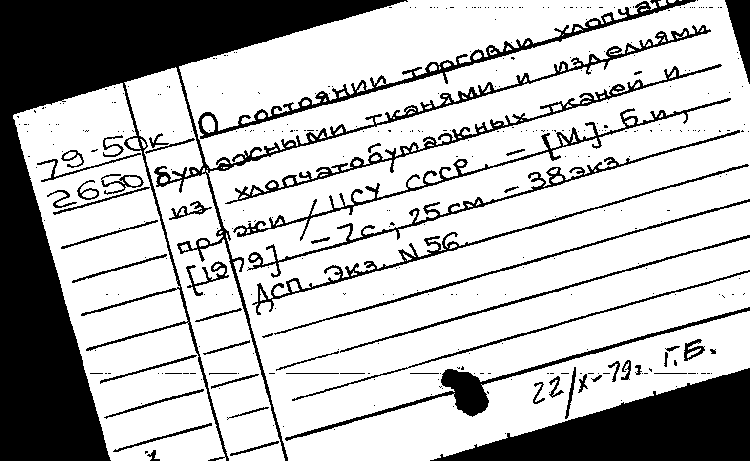 79-50к
2650
О состоянии торговли хлопчато
бумажными тканями и изделиями
из хлопчатобумажных тканей и
пряжи / ЦСУ СССР. - [М.]: Б.и.,
[1979]. - 7с.; 25см. - 38экз.
ДСП. Экз. N 56.
22/X-79г. Г.Б.